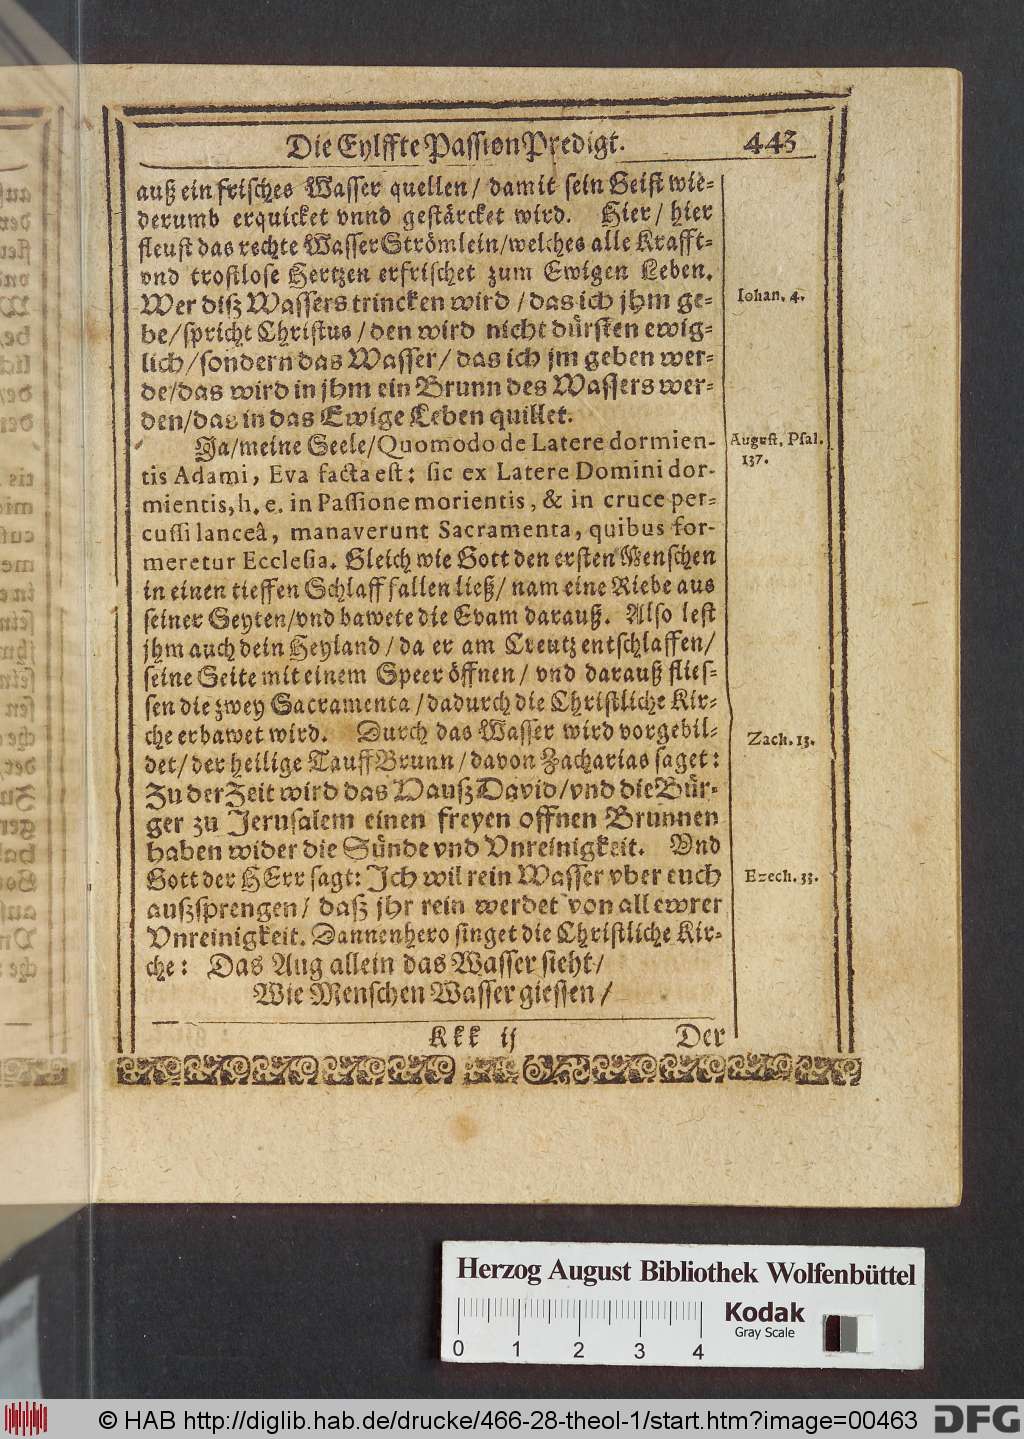 Die Eylffte Passion Predigt. 443
auß ein frisches Wasser quellen / damit sein Geist wie-
derumb erquicket vnnd gestärcket wird. Hier / hier
fleust das rechte Wasser Strömlein / welches alle Krafft-
vnd trostlose Hertzen erfrischet zum Ewigen Leben.
Wer diß Wassers trincken wird / das ich jhm ge-
be / spricht Christus / den wird nicht dürsten ewig-
lich / sondern das Wasser / das ich jm geben wer-
de / das wird in jhm ein Brunn des Wassers wer-
den / das in das Ewige Leben quillet.
Iohan. 4.
Ja / meine Seele / Quomodo de Latere dormien-
tis Adami, Eva facta est: sic ex Latere Domini dor-
mientis, h. e. in Passione morientis, & in cruce per-
cussi lanceâ, manaverunt Sacramenta, quibus for-
meretur Ecclesia. Gleich wie Gott den ersten Menschen
in einen tieffen Schlaff fallen ließ / nam eine Riebe aus
seiner Seyten / vnd bawete die Evam darauß. Also lest
jhm auch dein Heyland / da er am Creutz entschlaffen /
seine Seite mit einem Speer öffnen / vnd darauß flies-
sen die zwey Sacramenta / dadurch die Christliche Kir-
che erbawet wird. Durch das Wasser wird vorgebil-
det / der heilige Tauff Brunn / davon Zacharias saget:
Zu der Zeit wird das Hauß David / vnd die Bür-
ger zu Jerusalem einen freyen offnen Brunnen
haben wider die Sünde vnd Vnreinigkeit. Vnd
Gott der HErr sagt: Ich wil rein Wasser vber euch
außsprengen / daß jhr rein werdet von all ewrer
Vnreinigkeit. Dannenhero singet die Christliche Kir-
che: Das Aug allein das Wasser sieht /
Wie Menschen Wasser giessen /
August. Psal.
137.
Zach. 13.
Ezech. 33.
Kkk ij Der
Herzog August Bibliothek Wolfenbüttel
Kodak
Gray Scale
0 1 2 3 4
© HAB http://diglib.hab.de/drucke/466-28-theol-1/start.htm?image=00463
DFG